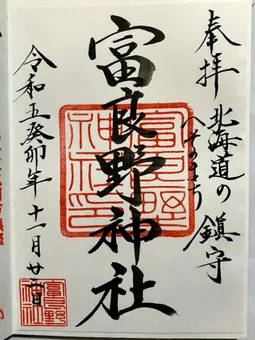 奉拝
北海道の
へそのまち
鎮守
富良野神社
富良野神社印
令和五癸卯年十一月廿一日
富良野神社